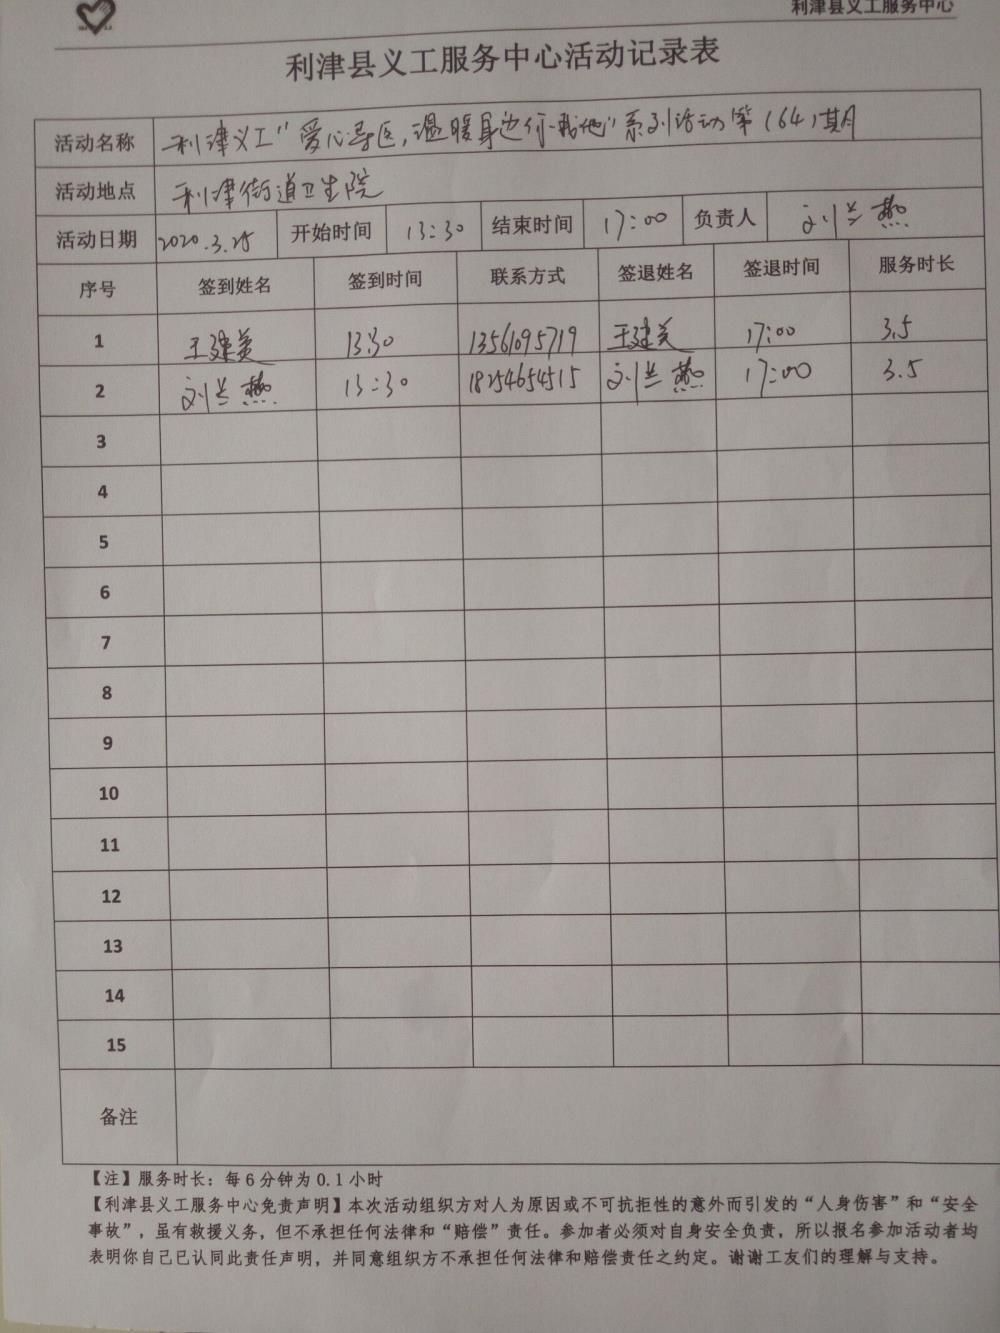 利津县义工服务中心
利津县义工服务中心活动记录表
活动名称 利津义工"爱心导医,温暖身边你·我·他"系列活动第(64)期
活动地点 利津街道卫生院
活动日期 2020.3.25 开始时间 13:30 结束时间 17:00 负责人 刘兰
序号 签到姓名 签到时间 联系方式 签退姓名 签退时间 服务时长
1 王建美 13:30 13561095719 王建美 17:00 3.5
2 刘兰 13:30 18254654515 刘兰 17:00 3.5
3
4
5
6
7
8
9
10
11
12
13
14
15
备注
【注】服务时长：每6分钟为0.1小时
【利津县义工服务中心免责声明】本次活动组织方对人为原因或不可抗拒性的意外而引发的“人身伤害”和“安全
事故”，虽有救援义务，但不承担任何法律和“赔偿”责任。参加者必须对自身安全负责，所以报名参加活动者均
表明你自己已认同此责任声明，并同意组织方不承担任何法律和赔偿责任之约定。谢谢工友们的理解与支持。